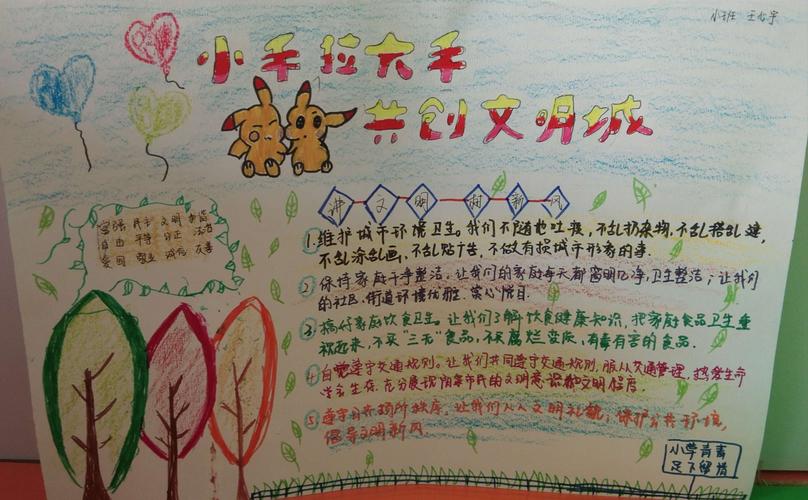 小班 王
小手拉大手
共创文明城
富强 民主 文明 和谐
自由 平等 公正 法治
爱国 敬业 诚信 友善
讲文明 树新风
1.维护城市环境卫生。我们不随地吐痰，不乱扔杂物，不乱搭乱建，
不乱涂乱画，不乱贴广告，不做有损城市形象的事.
2 保持家庭干净整洁，让我们的家庭每天都窗明几净，卫生整洁；让我们
的社区、街道环境优雅、赏心悦目.
3 搞好家庭饮食卫生。让我们了解饮食健康知识，把家庭食品卫生重
视起来，不买"三无"食品，不买腐烂变质，有毒有害的食品.
4 自觉遵守交通规则。让我们共同遵守交通规则，服从交通管理，热爱生命
市民的文明意识和文明程度.
5 遵守公共场所秩序，让我们人人文明礼貌，保护公共环境，
倡导文明新风
小草青青
足下留情